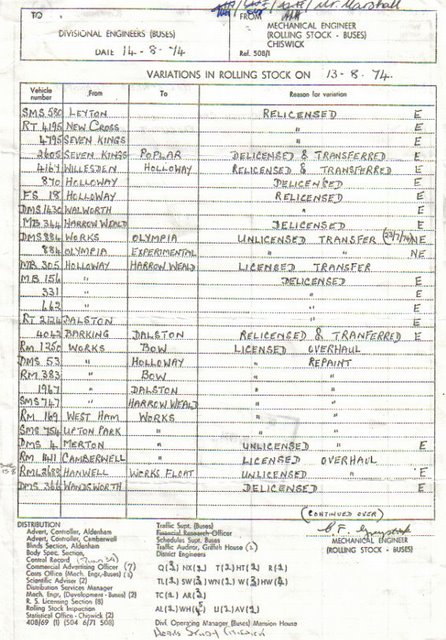 TO
FROM
Mr Marshall
DIVISIONAL ENGINEERS (BUSES)
MECHANICAL ENGINEER
(ROLLING STOCK - BUSES)
CHISWICK
DATE 14-8-74
Ref. 508/1
VARIATIONS IN ROLLING STOCK ON 13-8-74.
Vehicle number From To Reason for variation
SMS 580 LEYTON RELICENSED E
RT 4195 NEW CROSS " E
4795 SEVEN KINGS " E
2605 SEVEN KINGS POPLAR DELICENSED & TRANSFERRED E
4167 WILLESDEN HOLLOWAY RELICENSED & TRANSFERRED E
870 HOLLOWAY DELICENSED E
FS 18 HOLLOWAY RELICENSED E
DMS 1430 WALWORTH " E
MB 344 HARROW WEALD DELICENSED E
DMS 884 WORKS OLYMPIA UNLICENSED TRANSFER (23/7/74) NE
884 OLYMPIA EXPERIMENTAL " " NE
MB 305 HOLLOWAY HARROW WEALD LICENSED TRANSFER
MB 156 " DELICENSED E
331 " " E
662 " " E
RT 2124 DALSTON " E
4042 BARKING DALSTON RELICENSED & TRANFERRED E
RM 1250 WORKS BOW LICENSED OVERHAUL
DMS 53 " HOLLOWAY " REPAINT
RM 383 " BOW " "
1967 " DALSTON " "
SMS 747 " HARROW WEALD " "
RM 169 WEST HAM WORKS " "
SMS 754 UPTON PARK " " "
DMS 4 MERTON " UNLICENSED " E
RM 1411 CAMBERWELL " LICENSED OVERHAUL
RML 2688 HANWELL WORKS FLOAT UNLICENSED " E
DMS 366 WANDSWORTH DELICENSED E
(CONTINUED OVER)
MECHANICAL ENGINEER
(ROLLING STOCK - BUSES)
DISTRIBUTION
Advert, Controller, Aldenham
Advert, Controller, Camberwell
Blinds Section, Aldenham
Body Spec, Section,
Central Record
Commercial Advertising Officer (7)
Costs Office (Mech. Engr.-Buses) (1)
Scientific Adviser (2)
Distribution Services Manager
Mech. Engr, (Development - Buses) (2)
R. S. Licensing Section (8)
Rolling Stock Inspection
Statistical Office - Chiswick (2)
408/69 (1) (504 6/71 508)
Traffic Supt. (Buses)
Financial Research Officer
Schedules Supt. Buses
Traffic Auditor, Griffith House (2)
District Engineers
Q(2) NX(2) T(2) HT(2) R(2)
TL(2) SW(2) WN(2) W(2) HW(2)
TC(2) AR(2)
AL(2) WH(5) U(2) AV(2)
Divl. Operating Manager (Buses) Mansion House